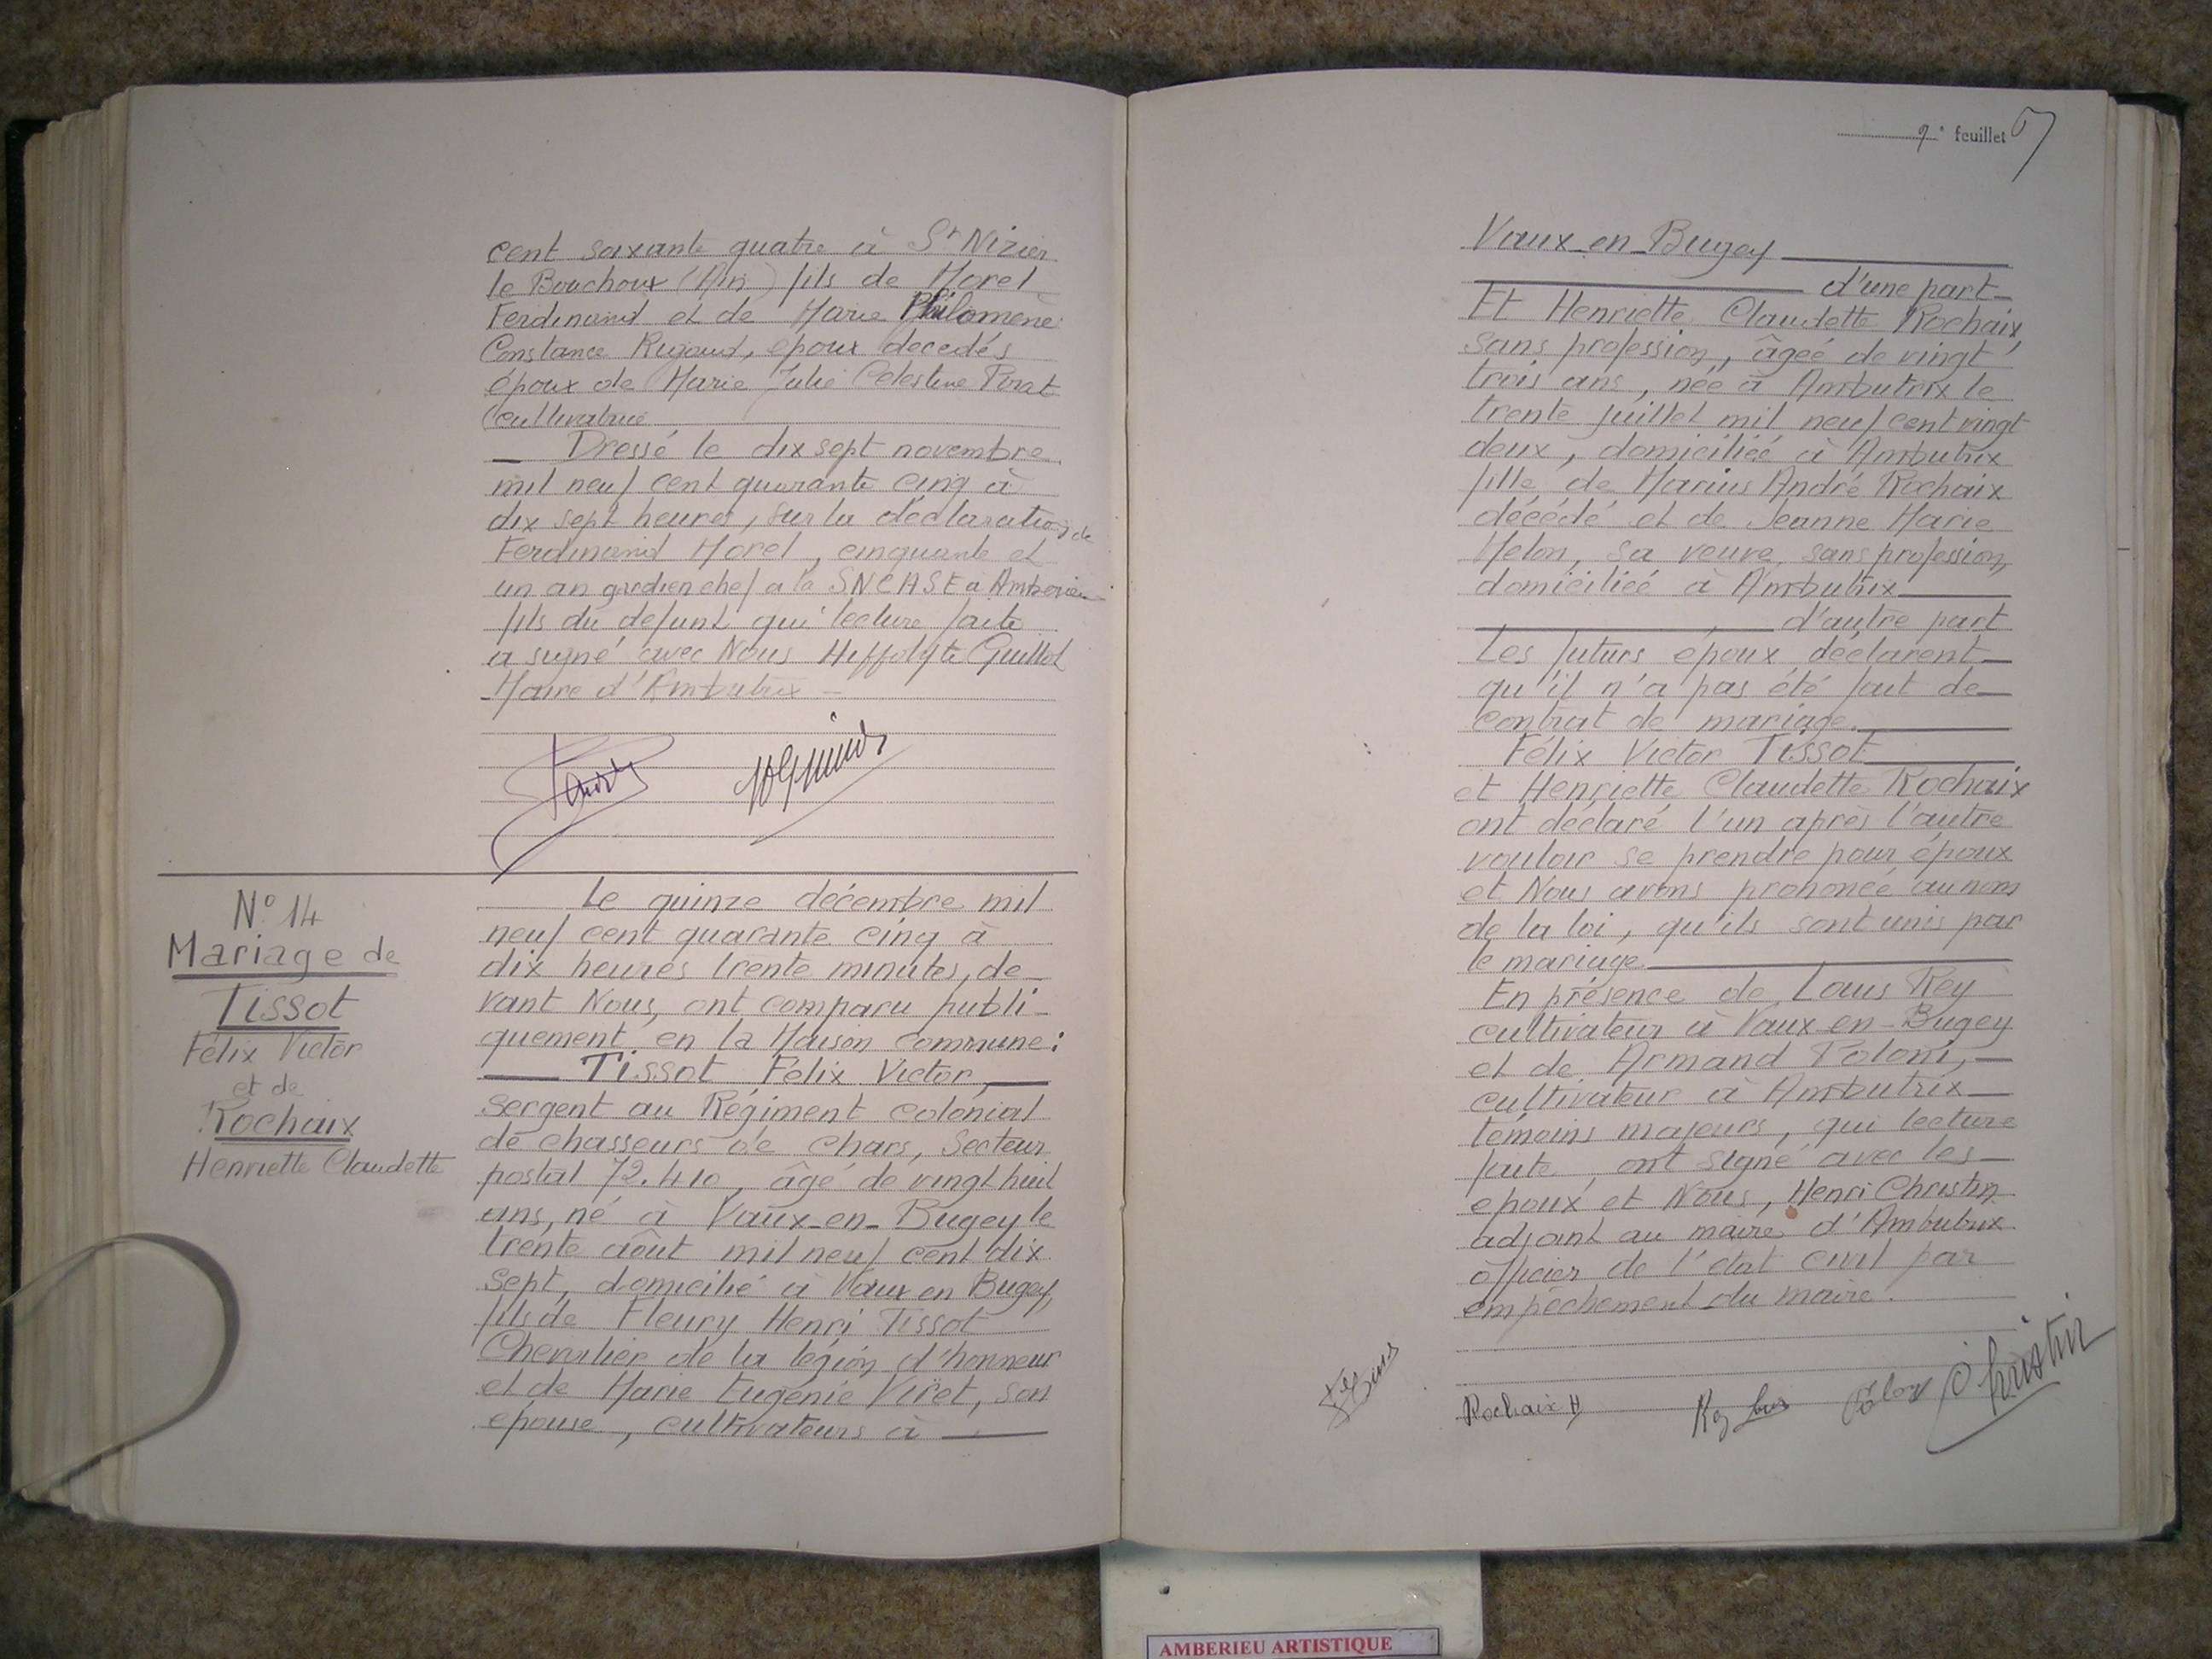 cent soixante quatre à St Nizier
le Bouchoux (Ain) fils de Morel
Ferdinand et de Marie Philomène
Constance Rigaud, époux décédés
époux de Marie Julie Celestine Pirat
cultivatrice
Dressé le dix sept novembre
mil neuf cent quarante cinq à
dix sept heures, sur la déclaration de
Ferdinand Morel, cinquante et
un an gardien chef a la SNCASE à Amberieu
fils du defunt qui lecture faite
a signé avec Nous Hippolyte Guillot
Maire d'Ambutrix
N° 14
Mariage de
Tissot
Félix Victor
et de
Rochaix
Henriette Claudette
Le quinze décembre mil
neuf cent quarante cinq à
dix heures trente minutes, de-
vant Nous, ont comparu publi-
quement en la Maison commune:
Tissot Félix Victor,
sergent au Régiment colonial
de chasseurs de chars, Secteur
postal 72.410, âgé de vingt huit
ans, né à Vaux-en-Bugey le
trente août mil neuf cent dix
sept, domicilié à Vaux en Bugey,
fils de Fleury Henri Tissot
Chevalier de la légion d'honneur
et de Marie Eugénie Viret, son
épouse, cultivateurs à
9e feuillet
Vaux-en-Bugey
d'une part
Et Henriette Claudette Rochaix,
sans profession, âgeé de vingt
trois ans, néé à Ambutrix le
trente juillet mil neuf cent vingt
deux, domiciliéé à Ambutrix
fille de Marius André Rochaix
décédé et de Jeanne Marie
Melon, sa veuve, sans profession,
domiciliéé à Ambutrix
d'autre part
Les futurs époux déclarent
qu'il n'a pas été fait de
contrat de mariage.
Félix Victor Tissot
et Henriette Claudette Rochaix
ont déclaré l'un après l'autre
vouloir se prendre pour époux
et Nous avons prononcé au nom
de la loi, qu'ils sont unis par
le mariage
En présence de Louis Rey
cultivateur à Vaux-en-Bugey
et de Armand Poloni,
cultivateur à Ambutrix
témoins majeurs, qui lecture
faite, ont signé avec les
epoux et Nous, Henri Christin
adjoint au maire d'Ambutrix
officier de l'état civil par
empêchement du maire.
Rochaix H
Rey Louis
Christin
AMBERIEU ARTISTIQUE